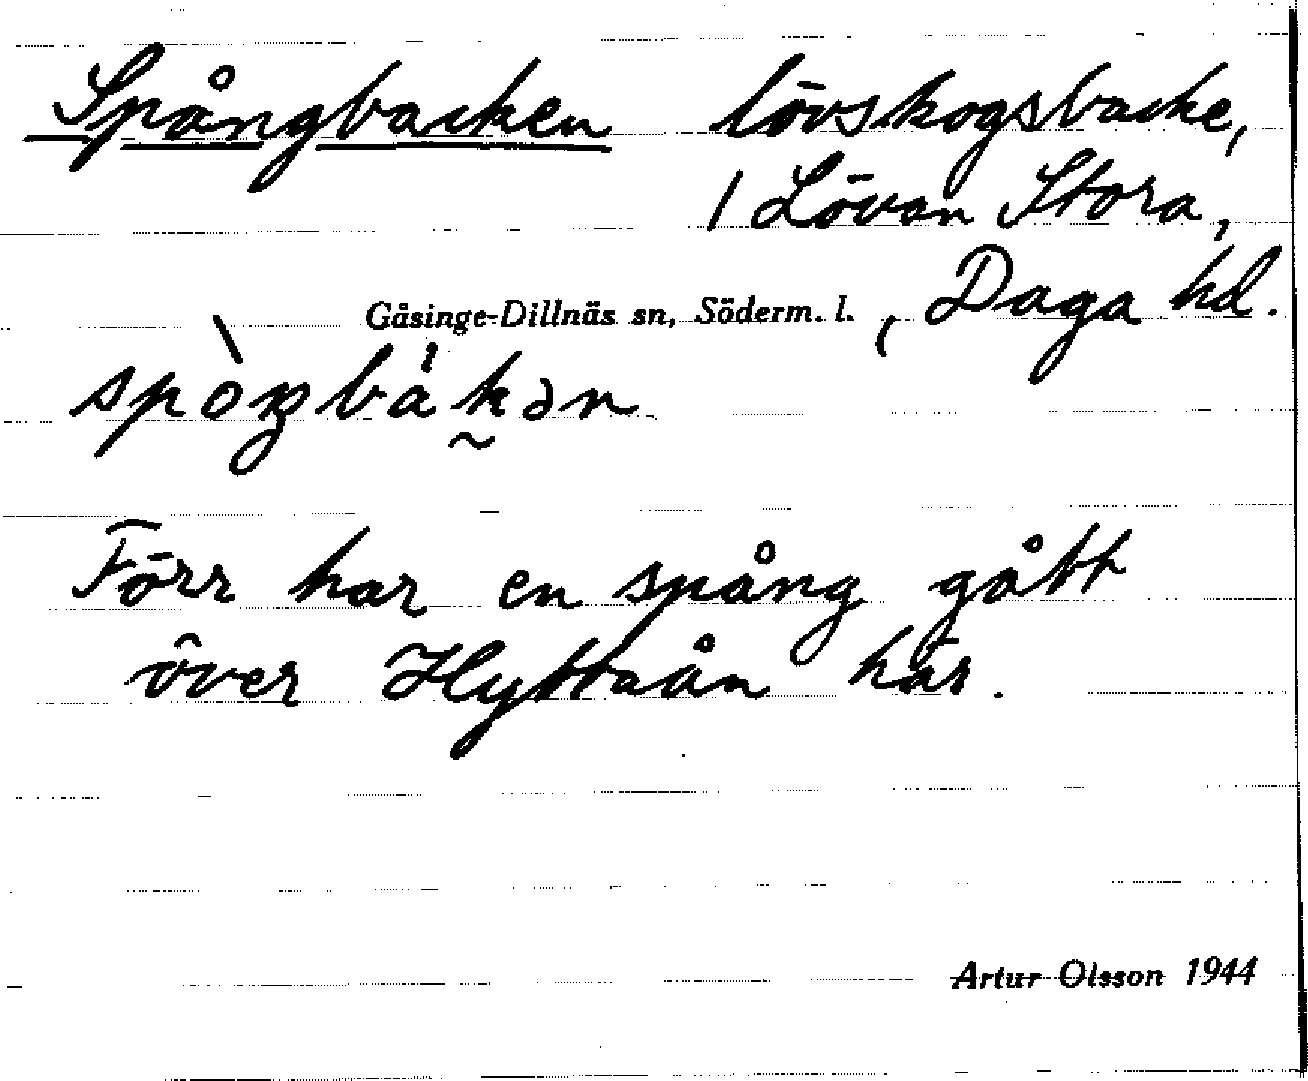 Spångbacken lövskogsbacke,
/ Lövan Stora,
Gåsinge-Dillnäs sn, Söderm. l. , Daga hd.
spòŋbàkən
Förr har en spång gått
över Hyttaån här.
Artur Olsson 1944